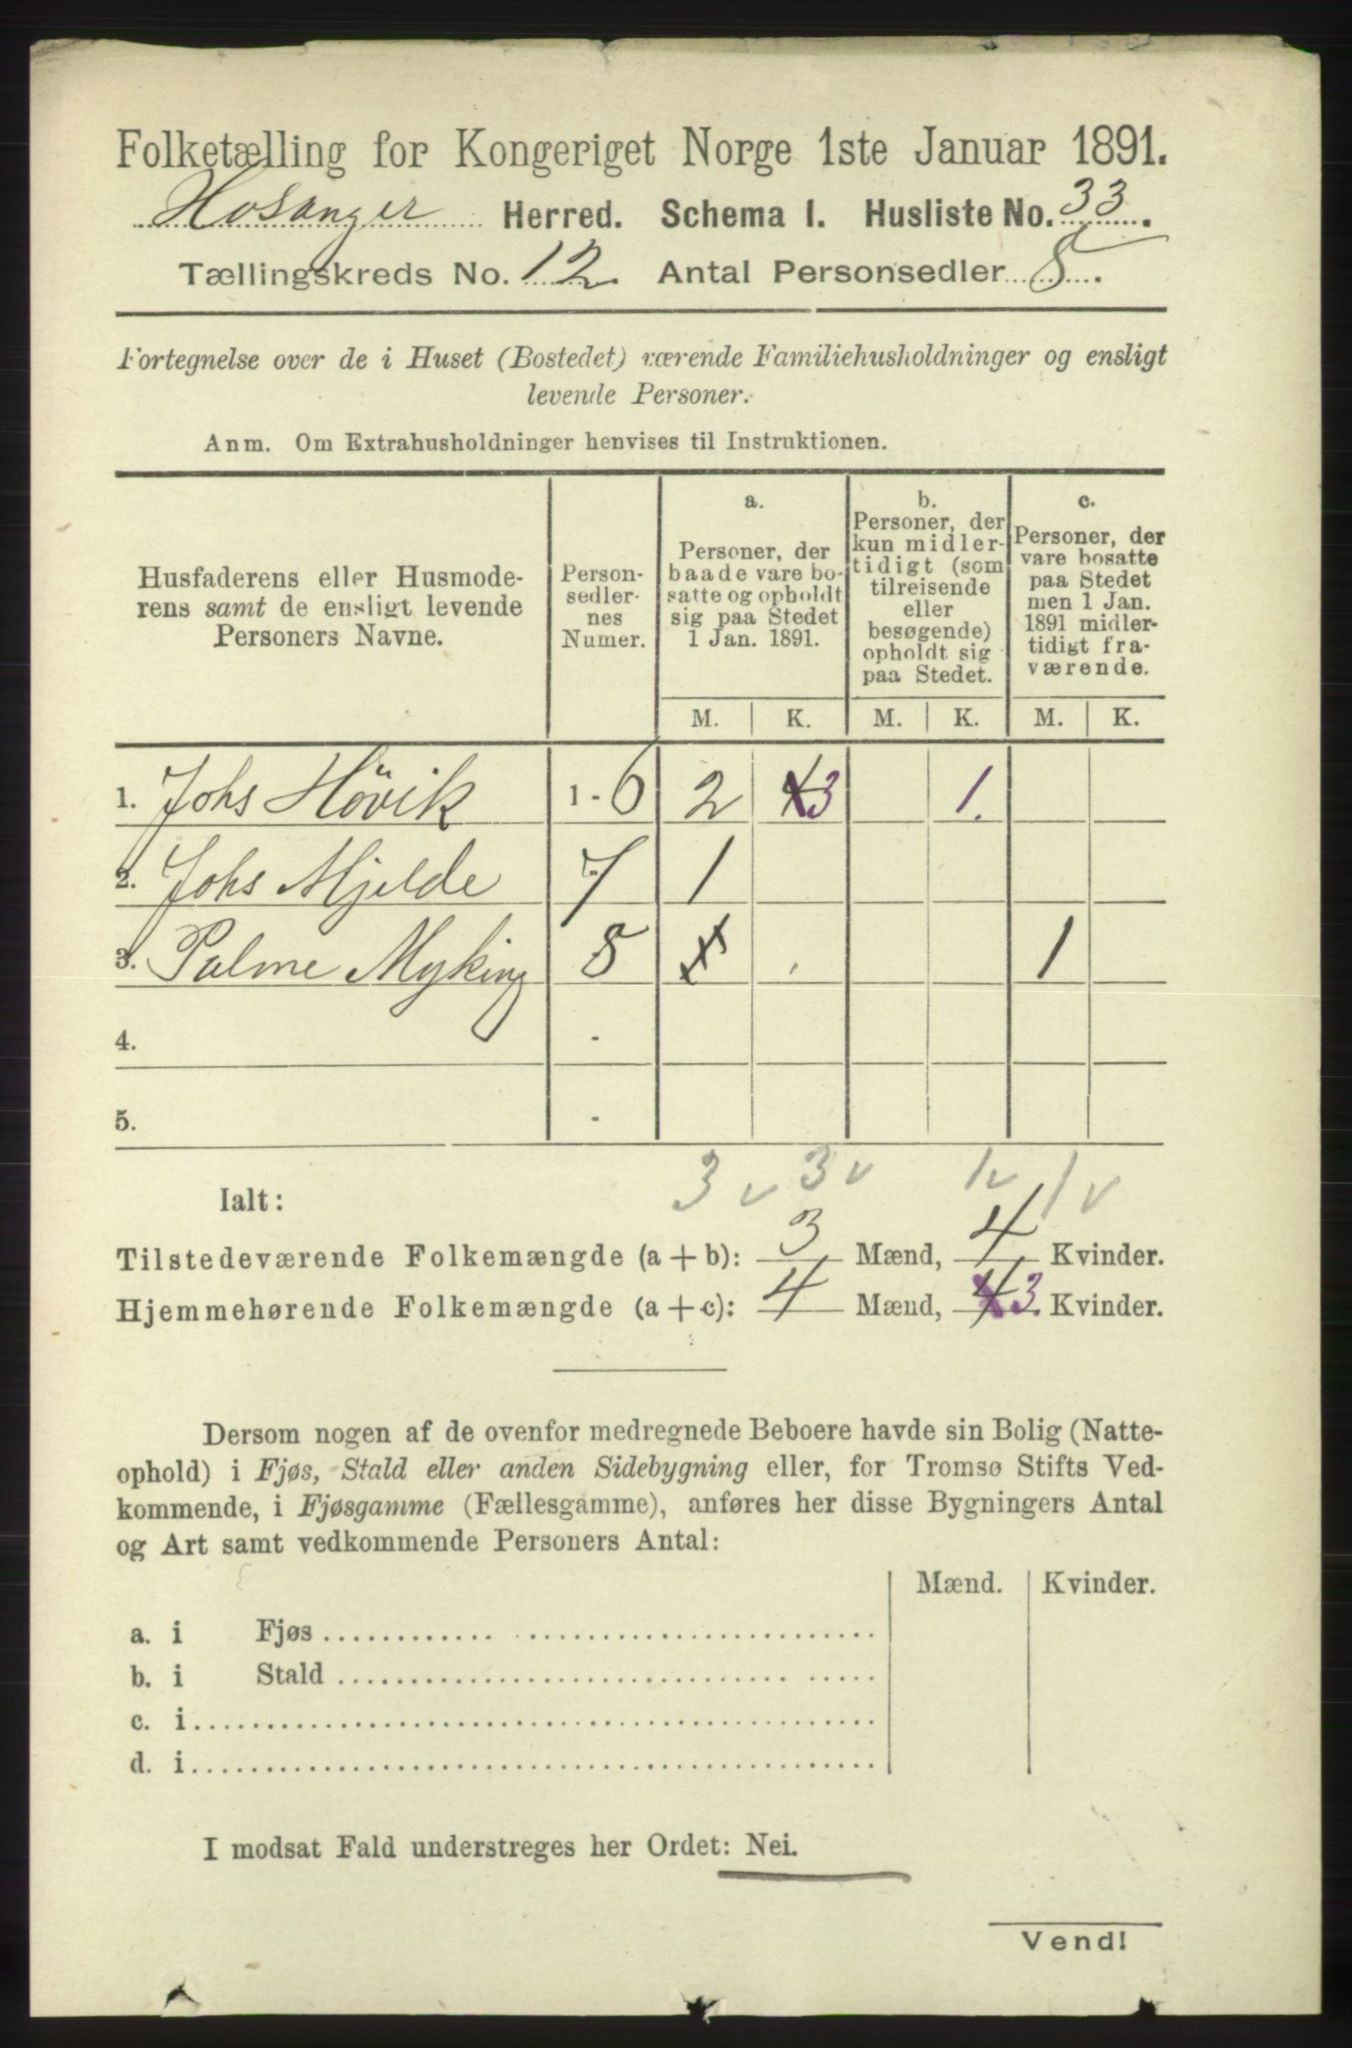 Folketælling for Kongeriget Norge 1ste Januar 1891.
Hosanger Herred. Schema I. Husliste No. 33.
Tællingskreds No. 12. Antal Personsedler 8.
Fortegnelse over de i Huset (Bostedet) værende Familiehusholdninger og ensligt
levende Personer.
Anm. Om Extrahusholdninger henvises til Instruktionen.
Husfaderens eller Husmoderens samt de ensligt levende Personers Navne.
Personsedlernes Numer.
a.
Personer, der
baade vare bo-
satte og opholdt
sig paa Stedet
1 Jan. 1891.
b.
Personer, der
kun midler-
tidigt (som
tilreisende
eller
besøgende)
opholdt sig
paa Stedet.
c.
Personer, der
vare bosatte
paa Stedet
men 1 Jan.
1891 midler-
tidigt fra-
værende.
M. K. M. K. M. K.
1. Johs Hövik 1 - 6 2 4 3 1.
2. Johs Mjelde 7 1
3. Palme Myking 8 1
4. -
5. -
3 v 3 v 1 v 1 v
Ialt:
Tilstedeværende Folkemængde (a + b): 3 Mænd, 4 Kvinder.
Hjemmehørende Folkemængde (a + c): 4 Mænd, 4 3. Kvinder.
Dersom nogen af de ovenfor medregnede Beboere havde sin Bolig (Natte-
ophold) i Fjøs, Stald eller anden Sidebygning eller, for Tromsø Stifts Ved-
kommende, i Fjøsgamme (Fællesgamme), anføres her disse Bygningers Antal
og Art samt vedkommende Personers Antal:
Mænd. Kvinder.
a. i Fjøs
b. i Stald
c. i
d. i
I modsat Fald understreges her Ordet: Nei.
Vend!